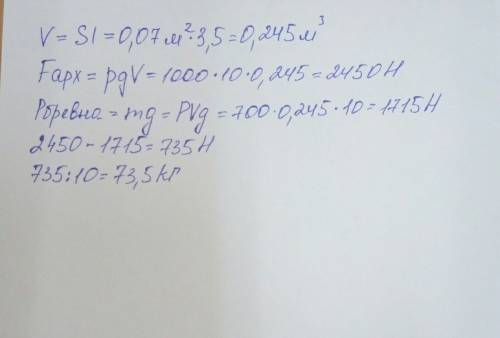 V = Sl = 0,07 м²·3,5 = 0,245 м³
Fарх = ρgV = 1000·10·0,245 = 2450 Н
Pбревна = mg = ρVg = 700·0,245·10 = 1715 Н
2450 - 1715 = 735 Н
735:10 = 73,5 кг